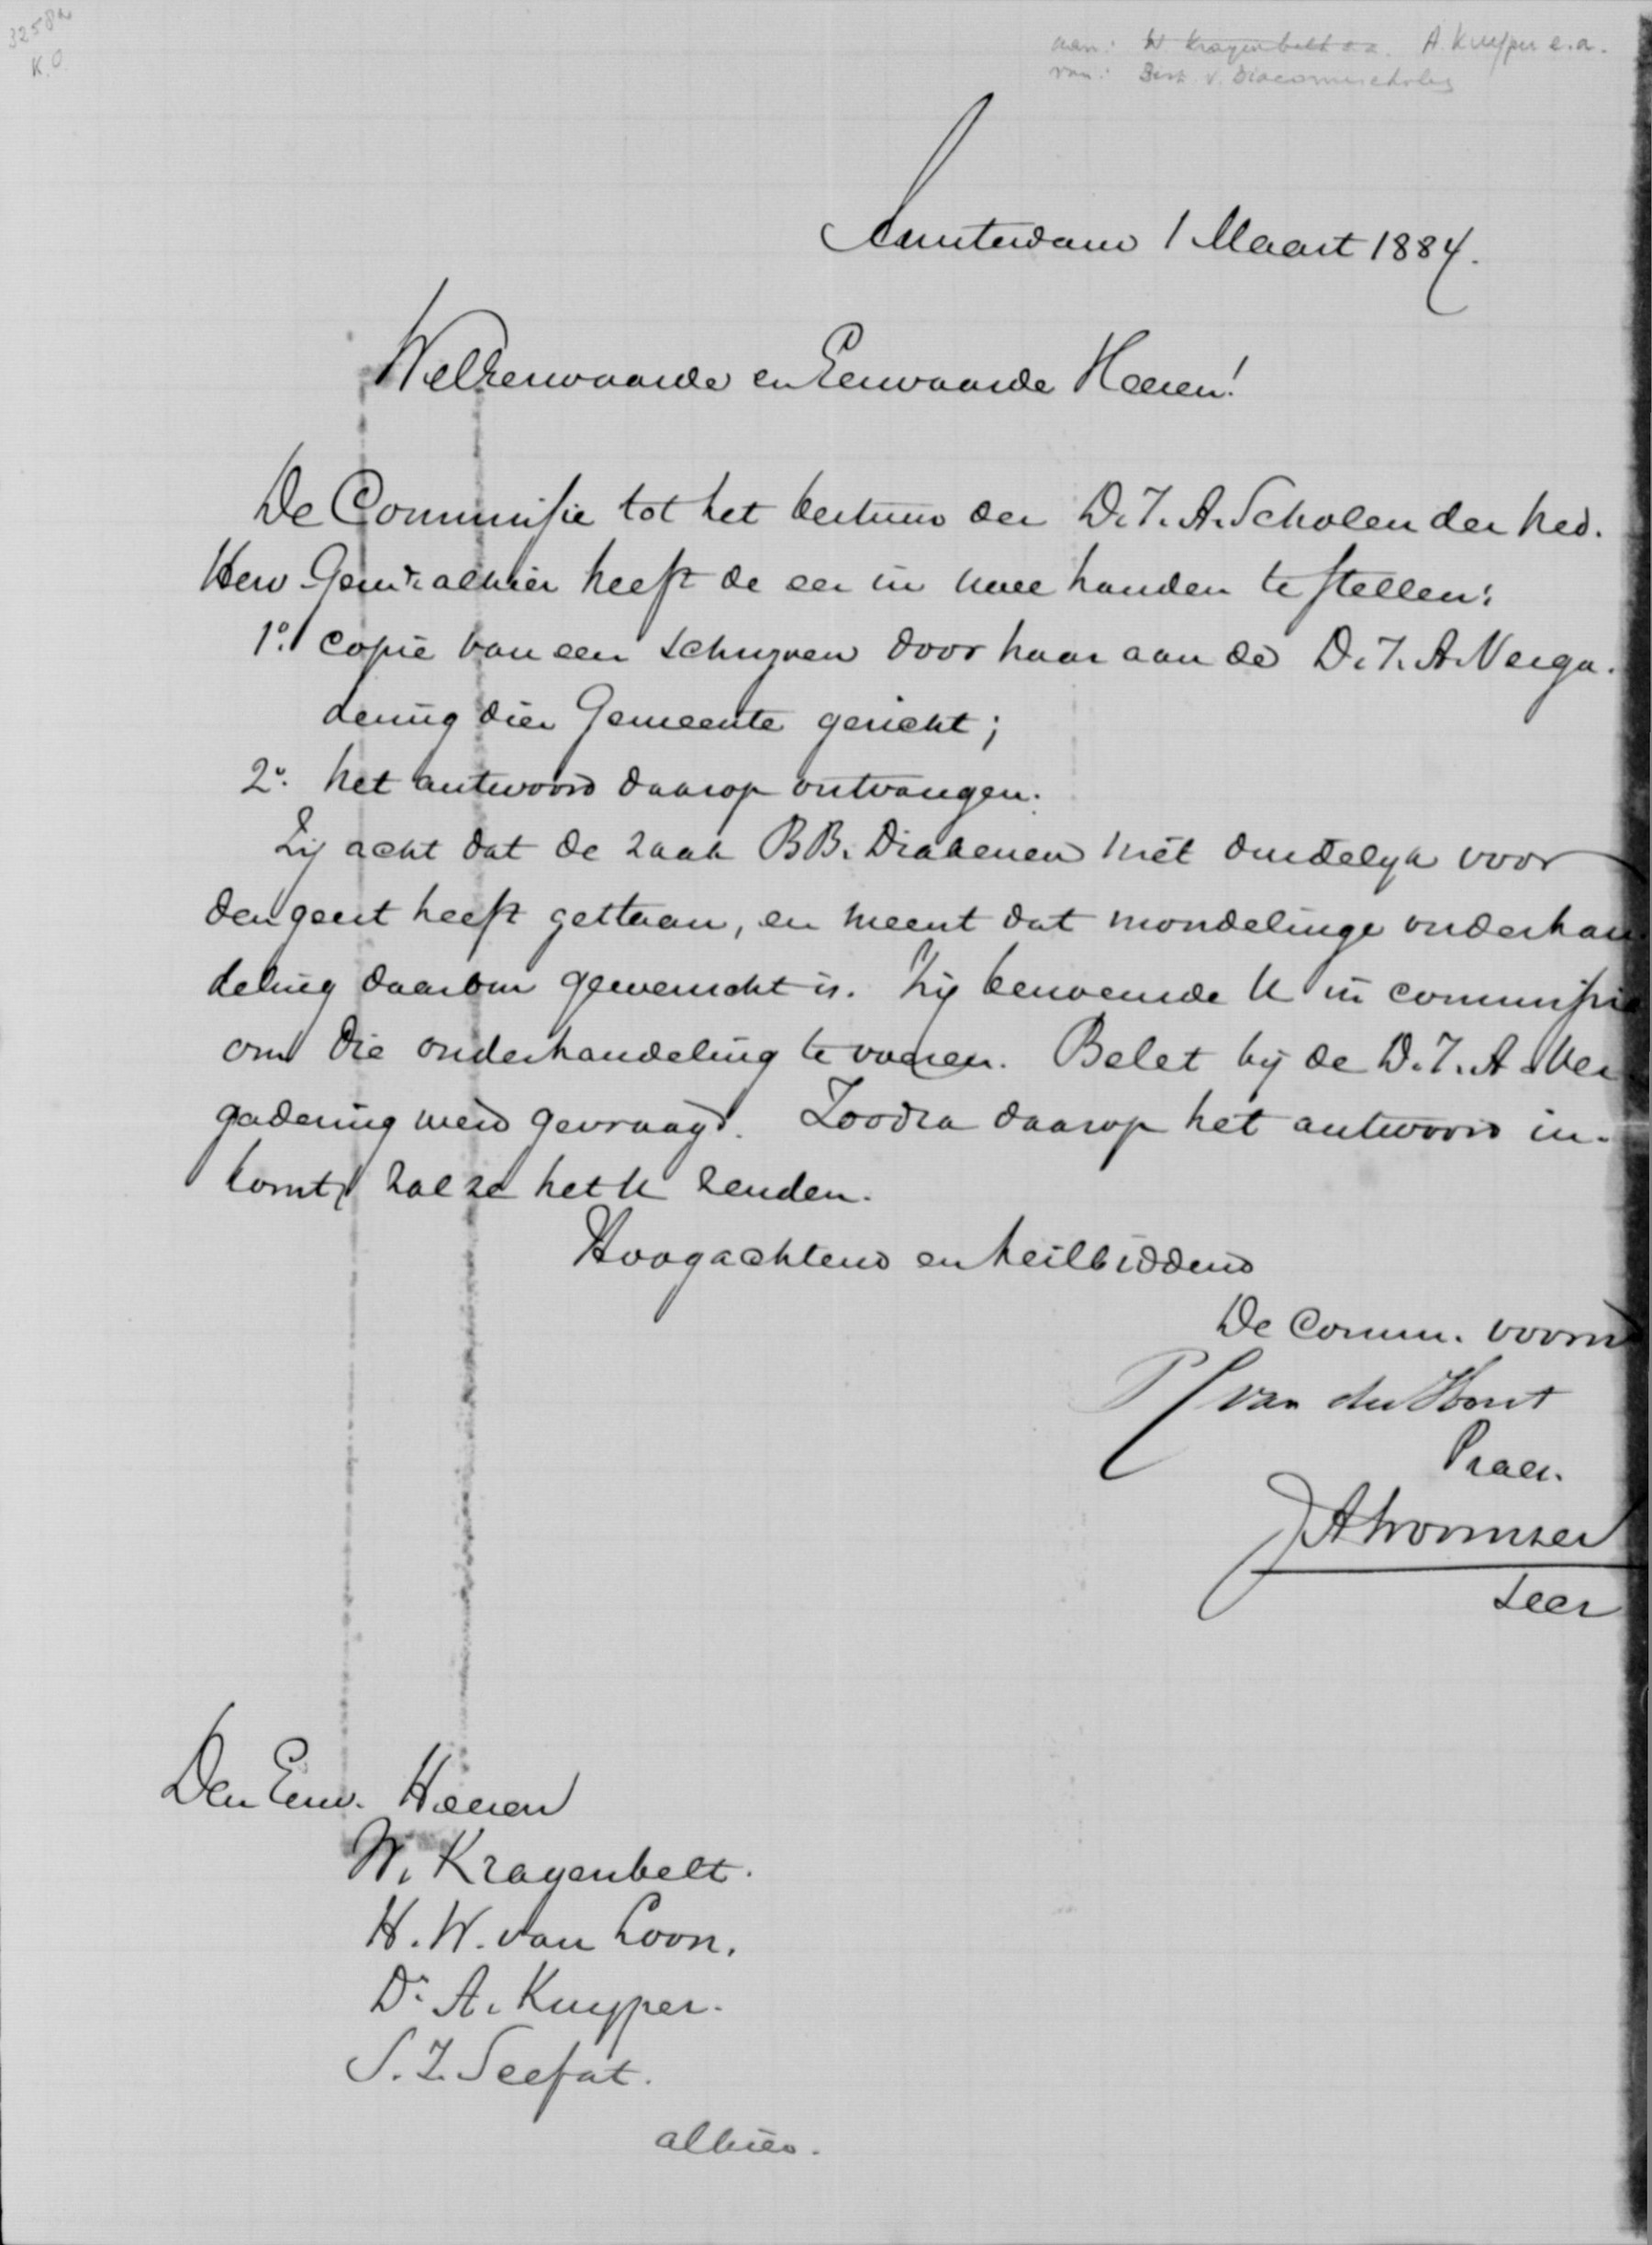 3258a
K.O.
aan: W. Kragenbelt e.a. A. Kuyper e.a.
van: Best. v. Diaconiescholen
Amsterdam 1 Maart 1884.
WelEerwaarde en Eerwaarde Heeren!
De Commissie tot het bestuur der D.T.A. Scholen der Ned.
Herv. Gemte. alhier heeft de eer in uwe handen te stellen:
1o. copie van een schrijven door haar aan de D.T.A. Verga-
dering dier Gemeente gericht;
2o. het antwoord daarop ontvangen.
Zij acht dat de zaak BB. Diakenen niet duidelijk voor
den geest heeft gestaan, en meent dat mondelinge onderhan-
deling daarom gewenscht is. Zij benoemde U in commissie
om die onderhandeling te voeren. Belet bij de D.T.A. Ver-
gadering werd gevraagd. Zoodra daarop het antwoord in-
komt, zal ze het U zenden.
Hoogachtend en heilbiddend
De Comm. voorn
van der Horst
Praes.
JA Wormser
Secr
Den Eerw. Heeren
W. Kragenbelt.
H. W. van Loon.
Dr. A. Kuyper.
S. J. Seefat.
alhier.